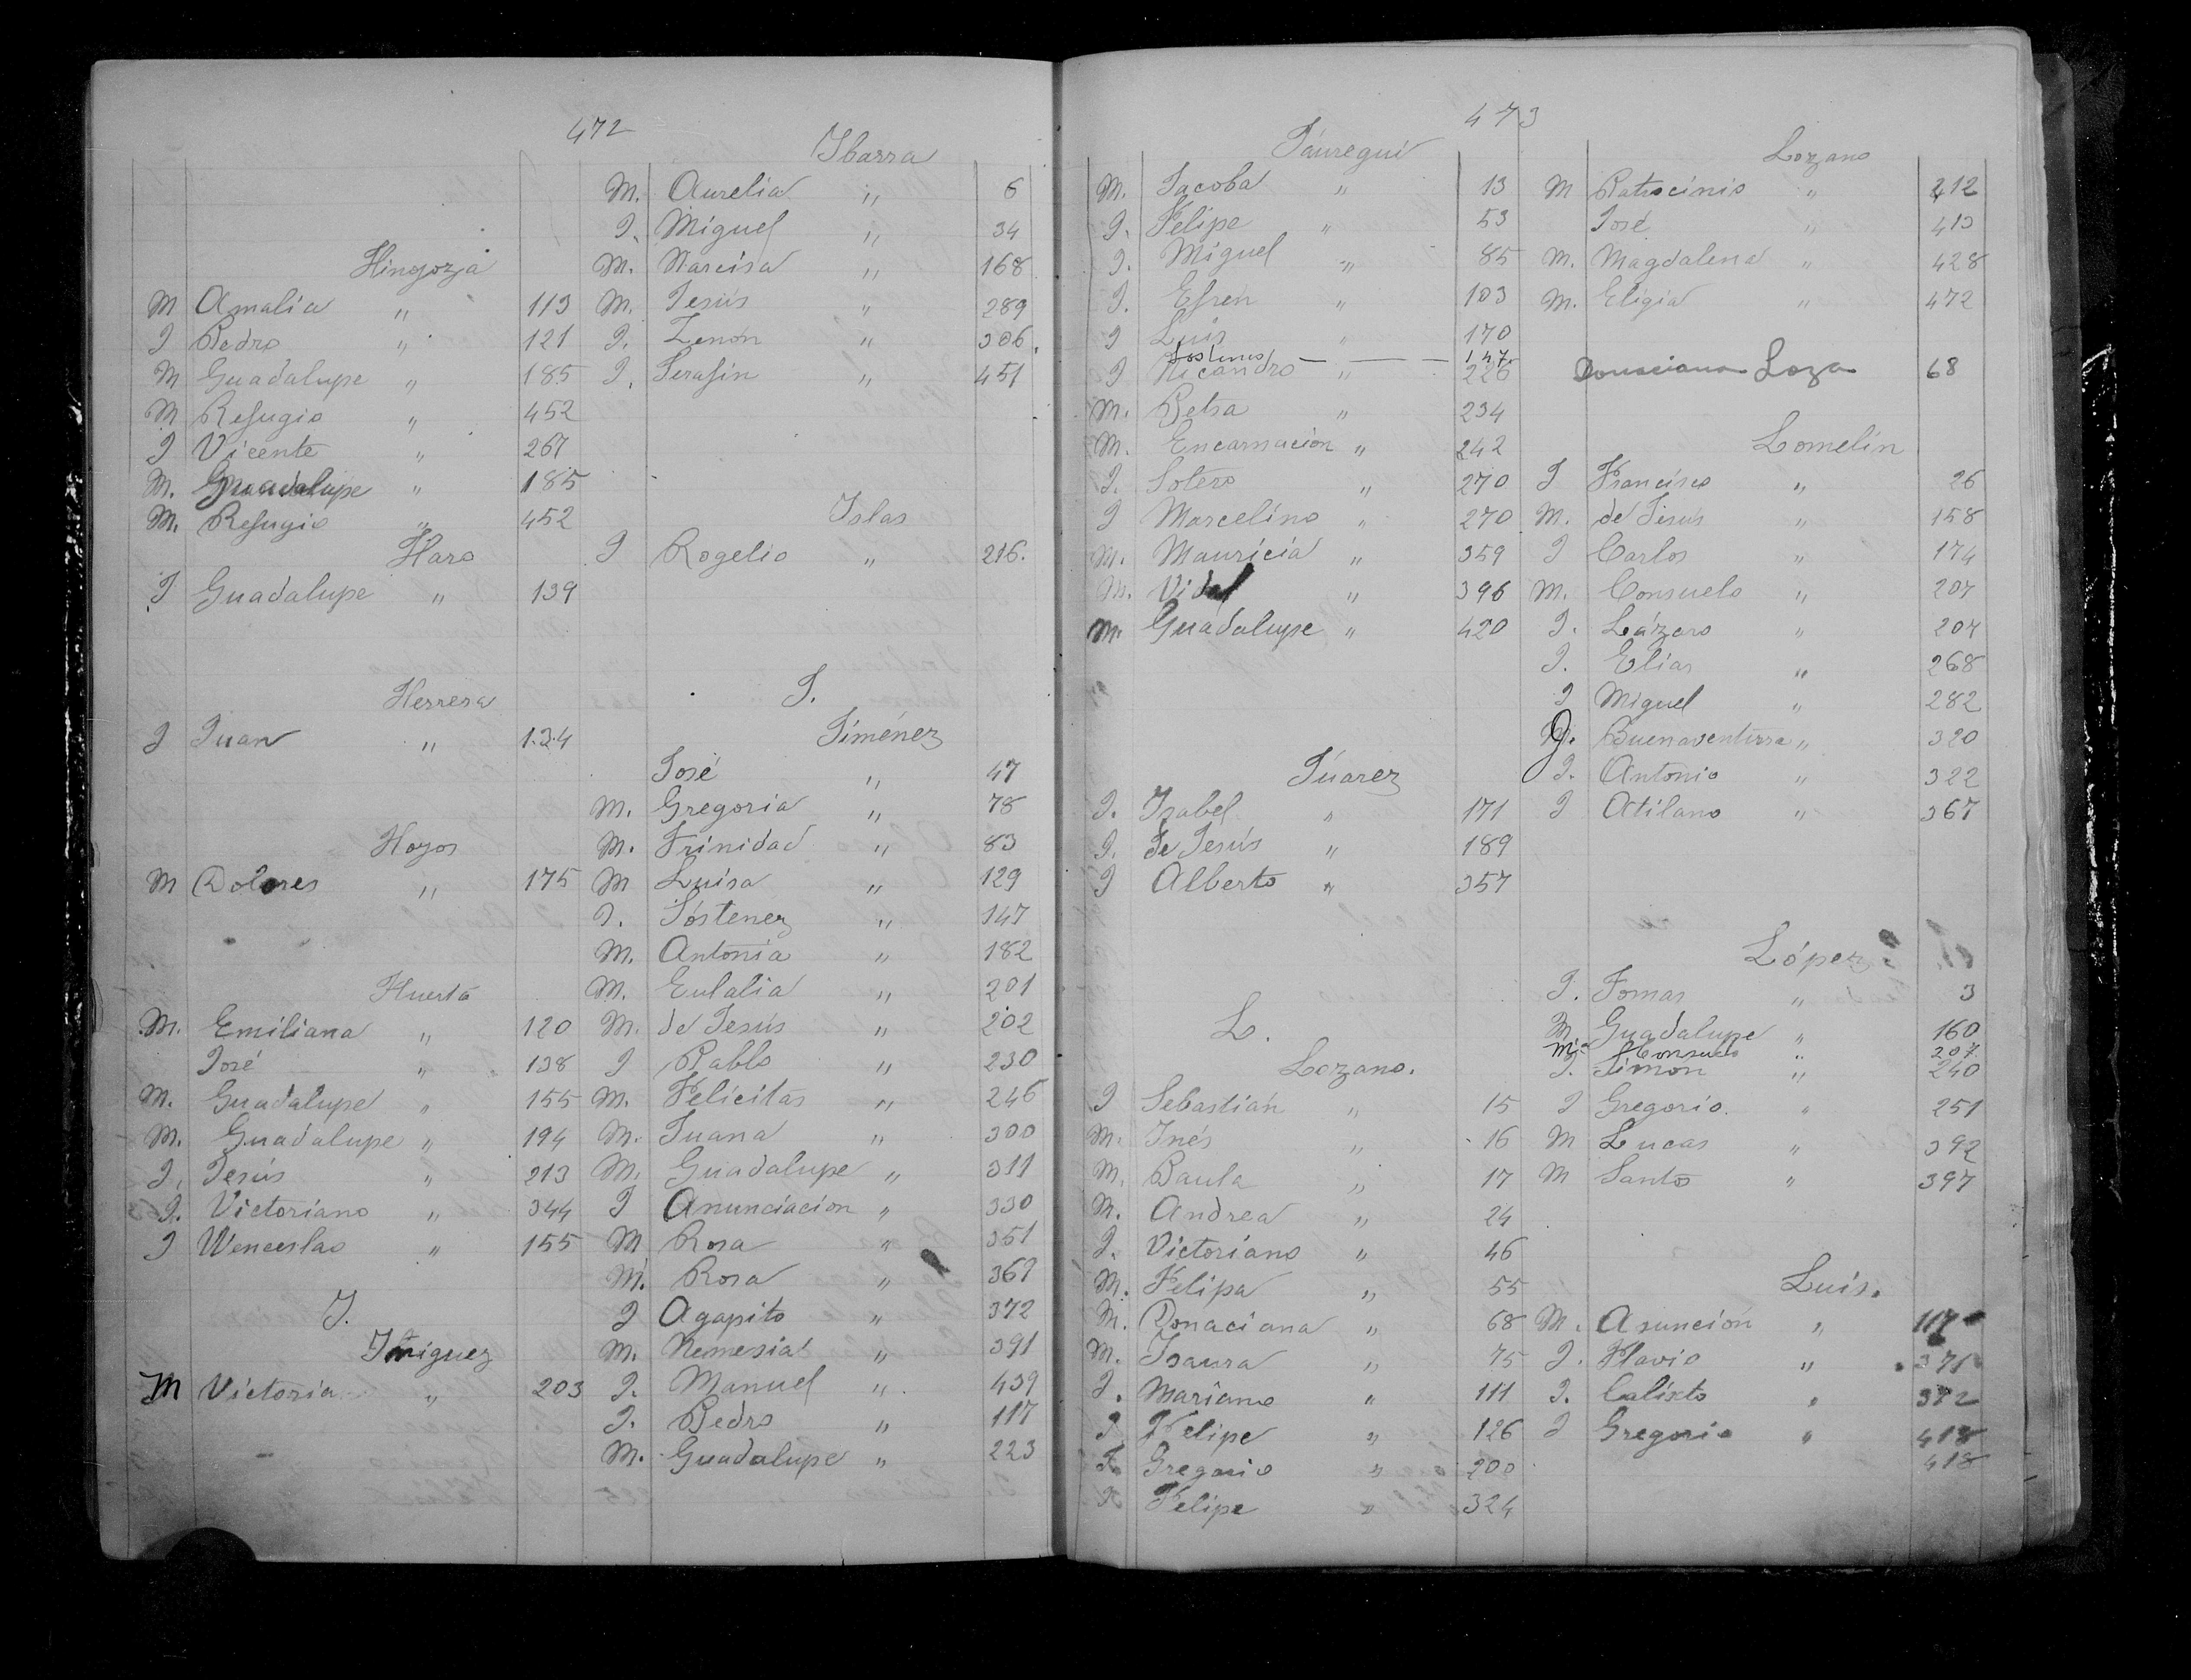 472
Hinojoza
M Amalia " 113
J Pedro " 121
M Guadalupe " 185
M Refugio " 452
J Vicente " 267
M. Guadalupe " 185
M. Refugio " 452
Haro
J Guadalupe " 139
Herrera
J Juan " 134
Hoyos
M Dolores " 175
Huerta
M. Emiliana " 120
José " 138
M. Guadalupe " 155
M. Guadalupe " 194
J. Jesús " 213
J. Victoriano " 344
J Wenceslao " 155
I.
Iñiguez
M Victoria " 203
Ibarra
M. Aurelia " 6
J. Miguel " 34
M. Narcisa " 168
M. Jesús " 289
J. Zenón " 306
J. Serafin " 451
Islas
J Rogelio " 216.
J.
Jiménez
José " 47
M. Gregoria " 78
M. Trinidad " 83
M Luisa " 129
J. Sóstenez " 147
M. Antonia " 182
M. Eulalia " 201
M. de Jesús " 202
J Pablo " 230
M. Felícitas " 246
M. Juana " 300
M. Guadalupe " 311
J Anunciación " 330
M Rosa " 351
M. Rosa " 367
J Agapito " 372
M. Nemesia " 391
J. Manuel " 439
J. Pedro " 117
M. Guadalupe " 223
473
Jáuregui
M. Jacoba " 13
J. Felipe " 53
J. Miguel " 85
J. Efrén " 103
J Luis " 170
Sostenes — — — 147
J Nicandro " 226
M. Petra " 234
M. Encarnación " 242
J. Sotero " 270
J Marcelino " 270
M. Mauricia " 359
M. Vidal " 396
M. Guadalupe " 420
Júarez
J. Isabel " 171
J. de Jesús " 189
J Alberto " 357
L.
Lozano.
J Sebastián " 15
M. Inés " 16
M. Paula " 17
M. Andrea " 24
J. Victoriano " 46
M. Felipa " 55
M. Donaciana " 68
M. Isaura " 75
J. Mariano " 111
J Felipe " 126
J. Gregorio " 200
J Felipe " 324
Lozano
M Patrocinio " 212
José " 413
M. Magdalena " 428
M. Eligia " 472
Donaciana Loza 68
Lomelín
J Francisco " 26
M. de Jesús " 158
J Carlos " 174
M. Consuelo " 207
J. Lázaro " 207
J. Elías " 268
J Miguel " 282
J. Buenaventura " 320
J. Antonio " 322
J Atilano " 367
López
J. Tomas " 3
M. Guadalupe " 160
M. Consuelo " 207
J. Simón " 240
J Gregorio " 251
M Lucas " 392
M Santos " 397
Luis.
M. Asunción " 117
J. Flavio " 371
J. Calixto " 372
J Gregorio " 418
418